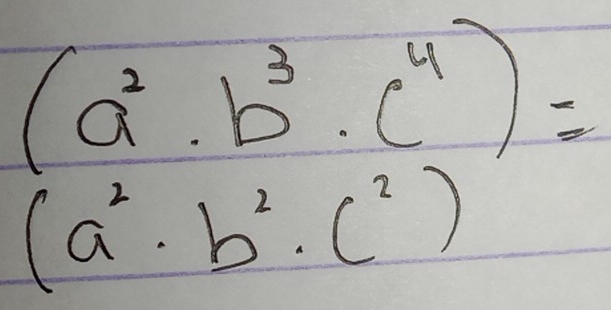 (a² . b³ . c⁴) =
(a² . b² . c²)